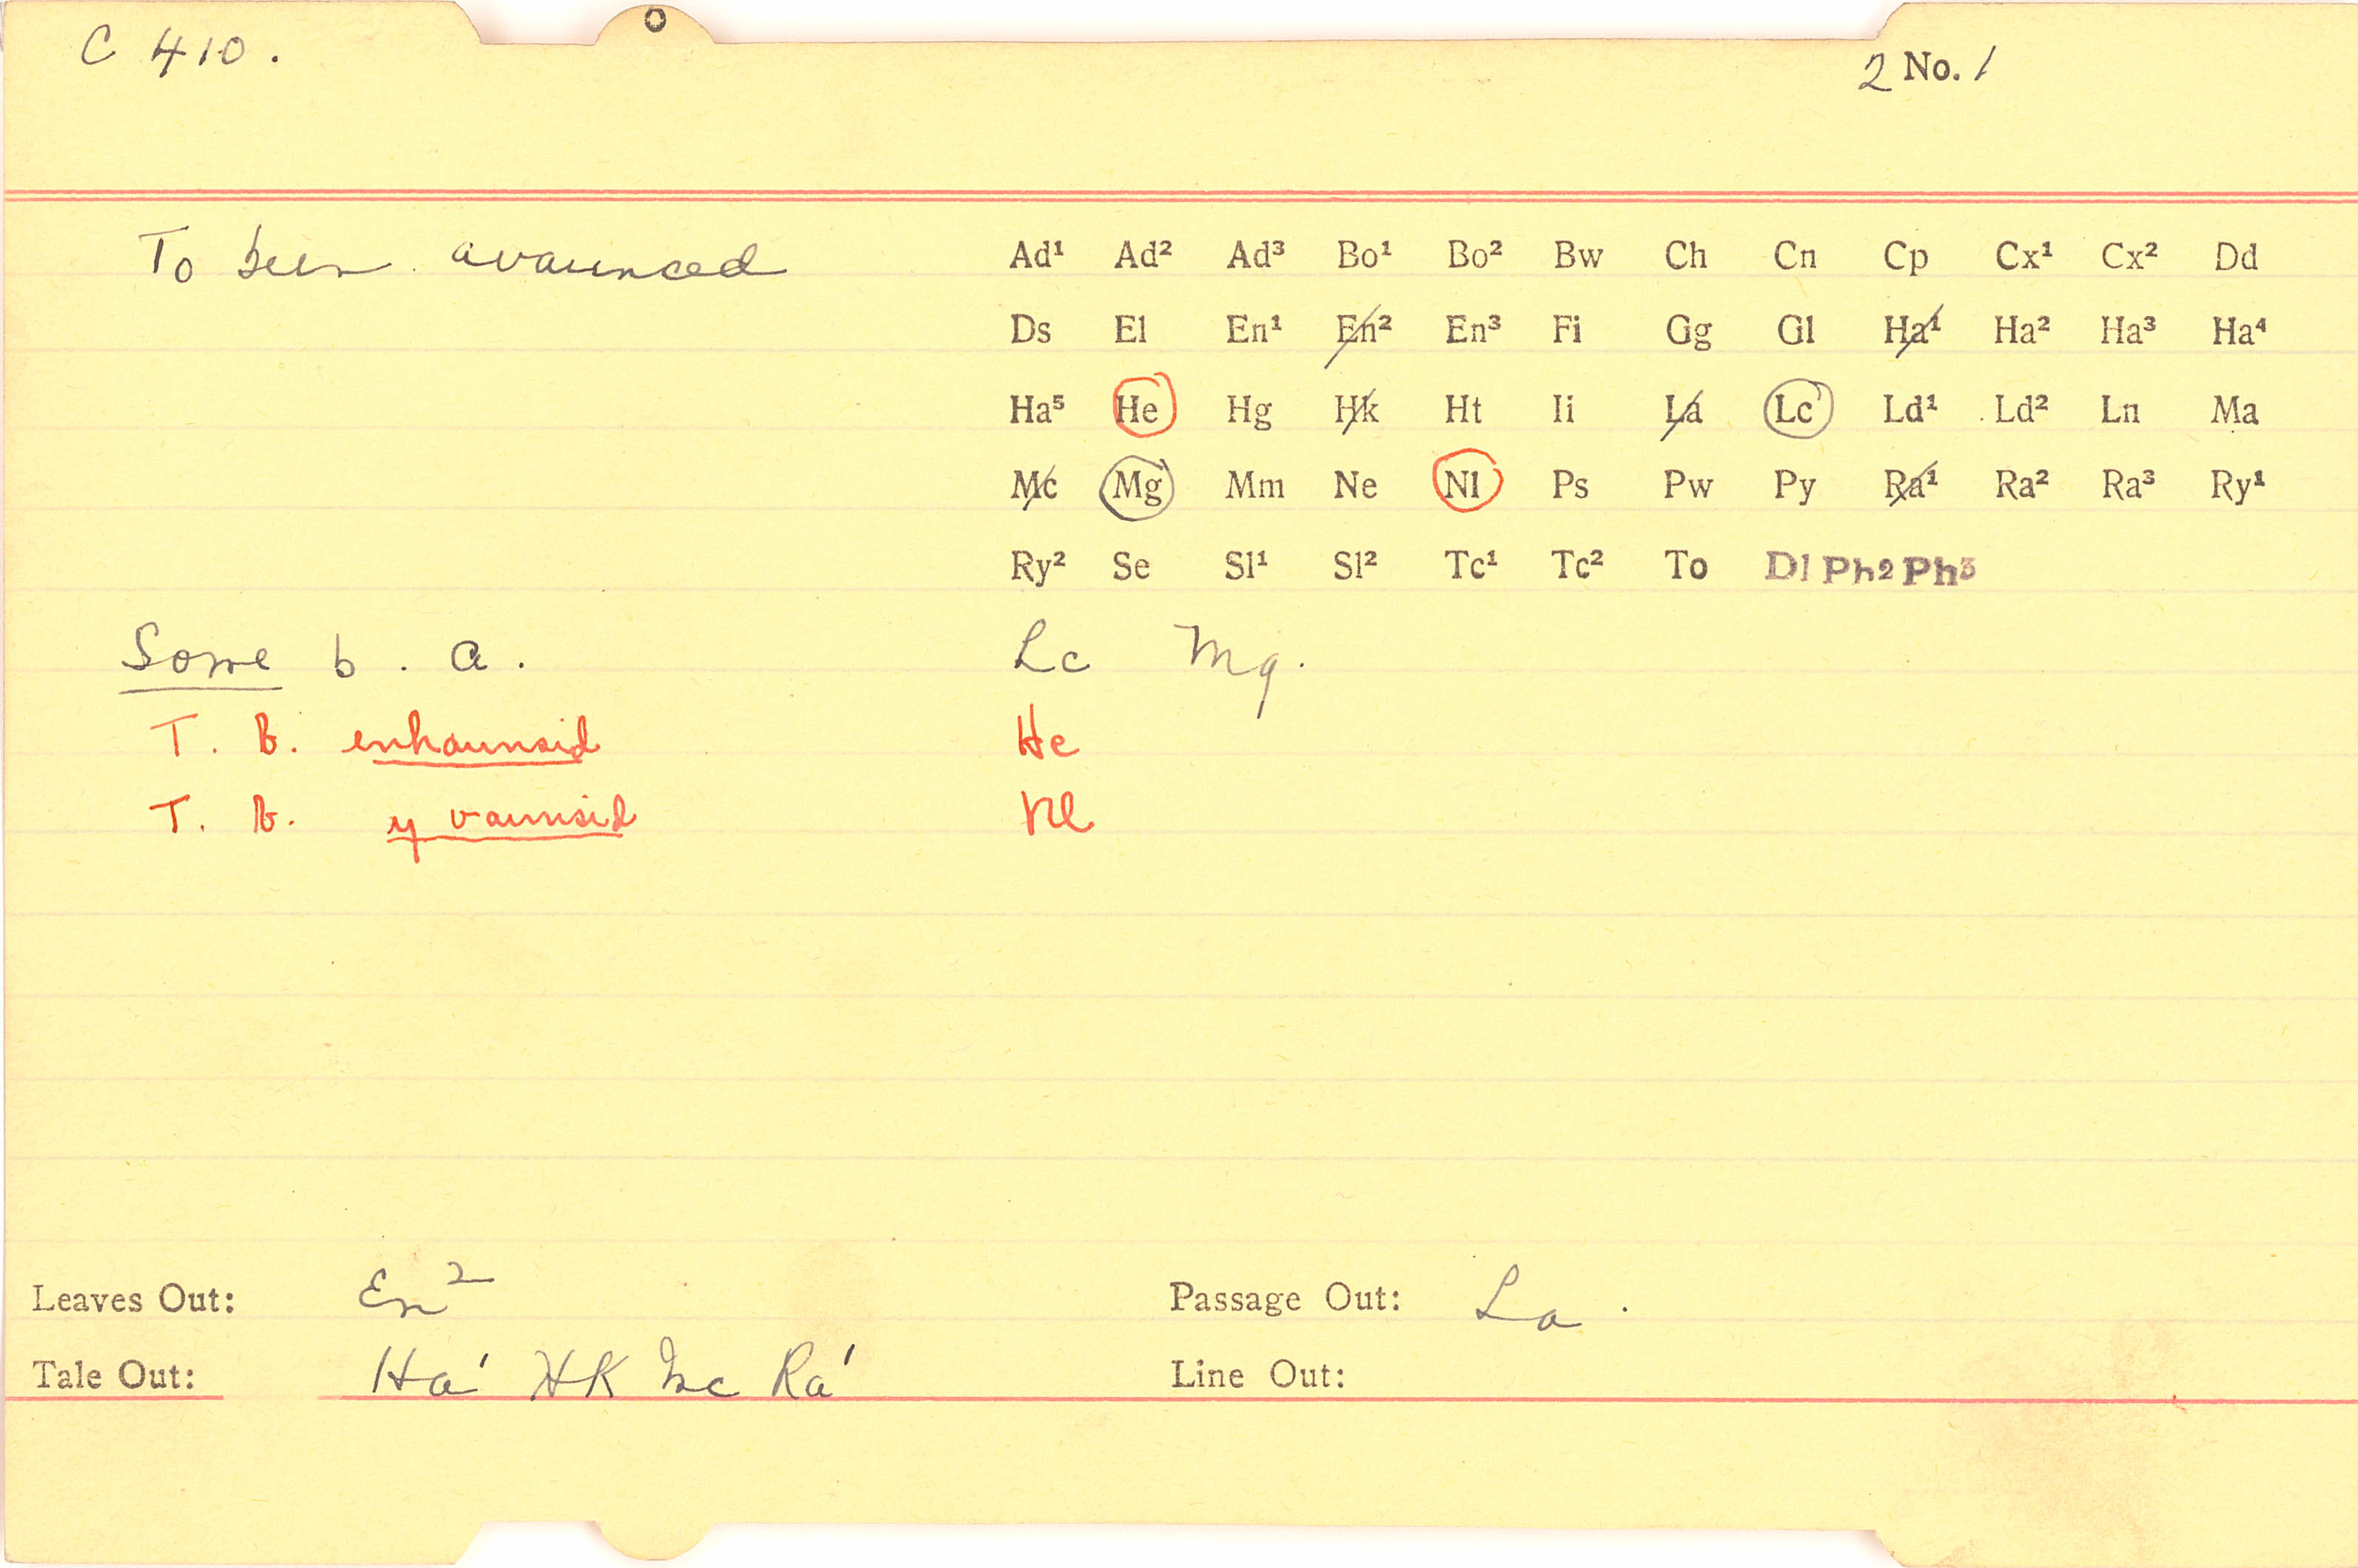 C 410.
2 No. 1
To been avaunced
Ad¹ Ad² Ad³ Bo¹ Bo² Bw Ch Cn Cp Cx¹ Cx² Dd
Ds El En¹ En² En³ Fi Gg Gl Ha¹ Ha² Ha³ Ha⁴
Ha⁵ He Hg Hk Ht Ii La Lc Ld¹ Ld² Ln Ma
Mc Mg Mm Ne Nl Ps Pw Py Ra¹ Ra² Ra³ Ry¹
Ry² Se Sl¹ Sl² Tc¹ Tc² To Dl Ph2 Ph3
Some b. a. Lc Mg.
T. B. enhaunsid He
T. B. y vaunsid Nl
Leaves Out: En² Passage Out: La.
Tale Out: Ha¹ HK Mc Ra¹ Line Out: